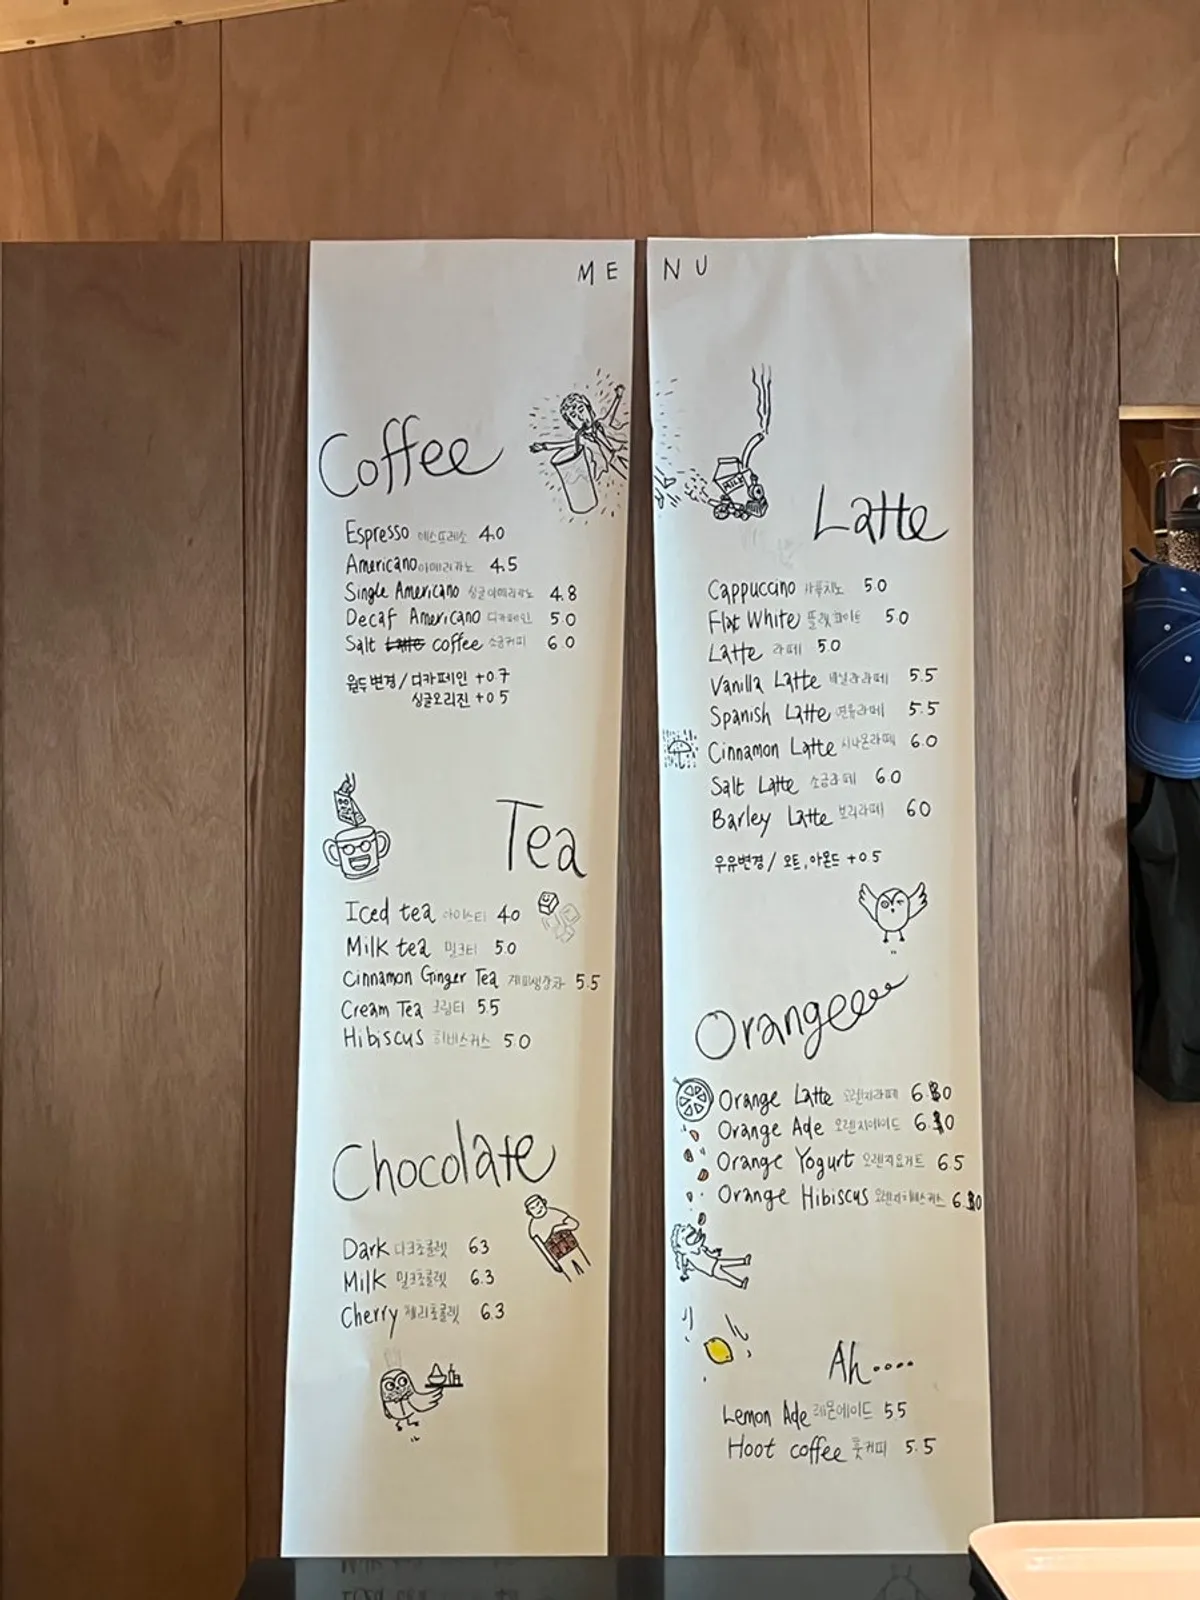 ME NU
Coffee
Espresso 에스프레소 4.0
Americano 아메리카노 4.5
Single Americano 싱글아메리카노 4.8
Decaf Americano 디카페인 5.0
Salt Latte coffee 소금커피 6.0
원두변경/디카페인 +0.7
싱글오리진 +0.5
Tea
Iced tea 아이스티 4.0
Milk tea 밀크티 5.0
Cinnamon Ginger Tea 계피생강차 5.5
Cream Tea 크림티 5.5
Hibiscus 히비스커스 5.0
Chocolate
Dark 다크초콜렛 6.3
Milk 밀크초콜렛 6.3
Cherry 체리초콜렛 6.3
MILK
Latte
Cappuccino 카푸치노 5.0
Flat White 플랫화이트 5.0
Latte 라떼 5.0
Vanilla Latte 바닐라라떼 5.5
Spanish Latte 연유라떼 5.5
Cinnamon Latte 시나몬라떼 6.0
Salt Latte 소금라떼 6.0
Barley Latte 보리라떼 6.0
우유변경/ 오트, 아몬드 +0.5
Orangeeee
Orange Latte 오렌지라떼 6.0
Orange Ade 오렌지에이드 6.0
Orange Yogurt 오렌지요거트 6.5
Orange Hibiscus 오렌지히비스커스 6.0
Ah....
Lemon Ade 레몬에이드 5.5
Hoot coffee 훗커피 5.5